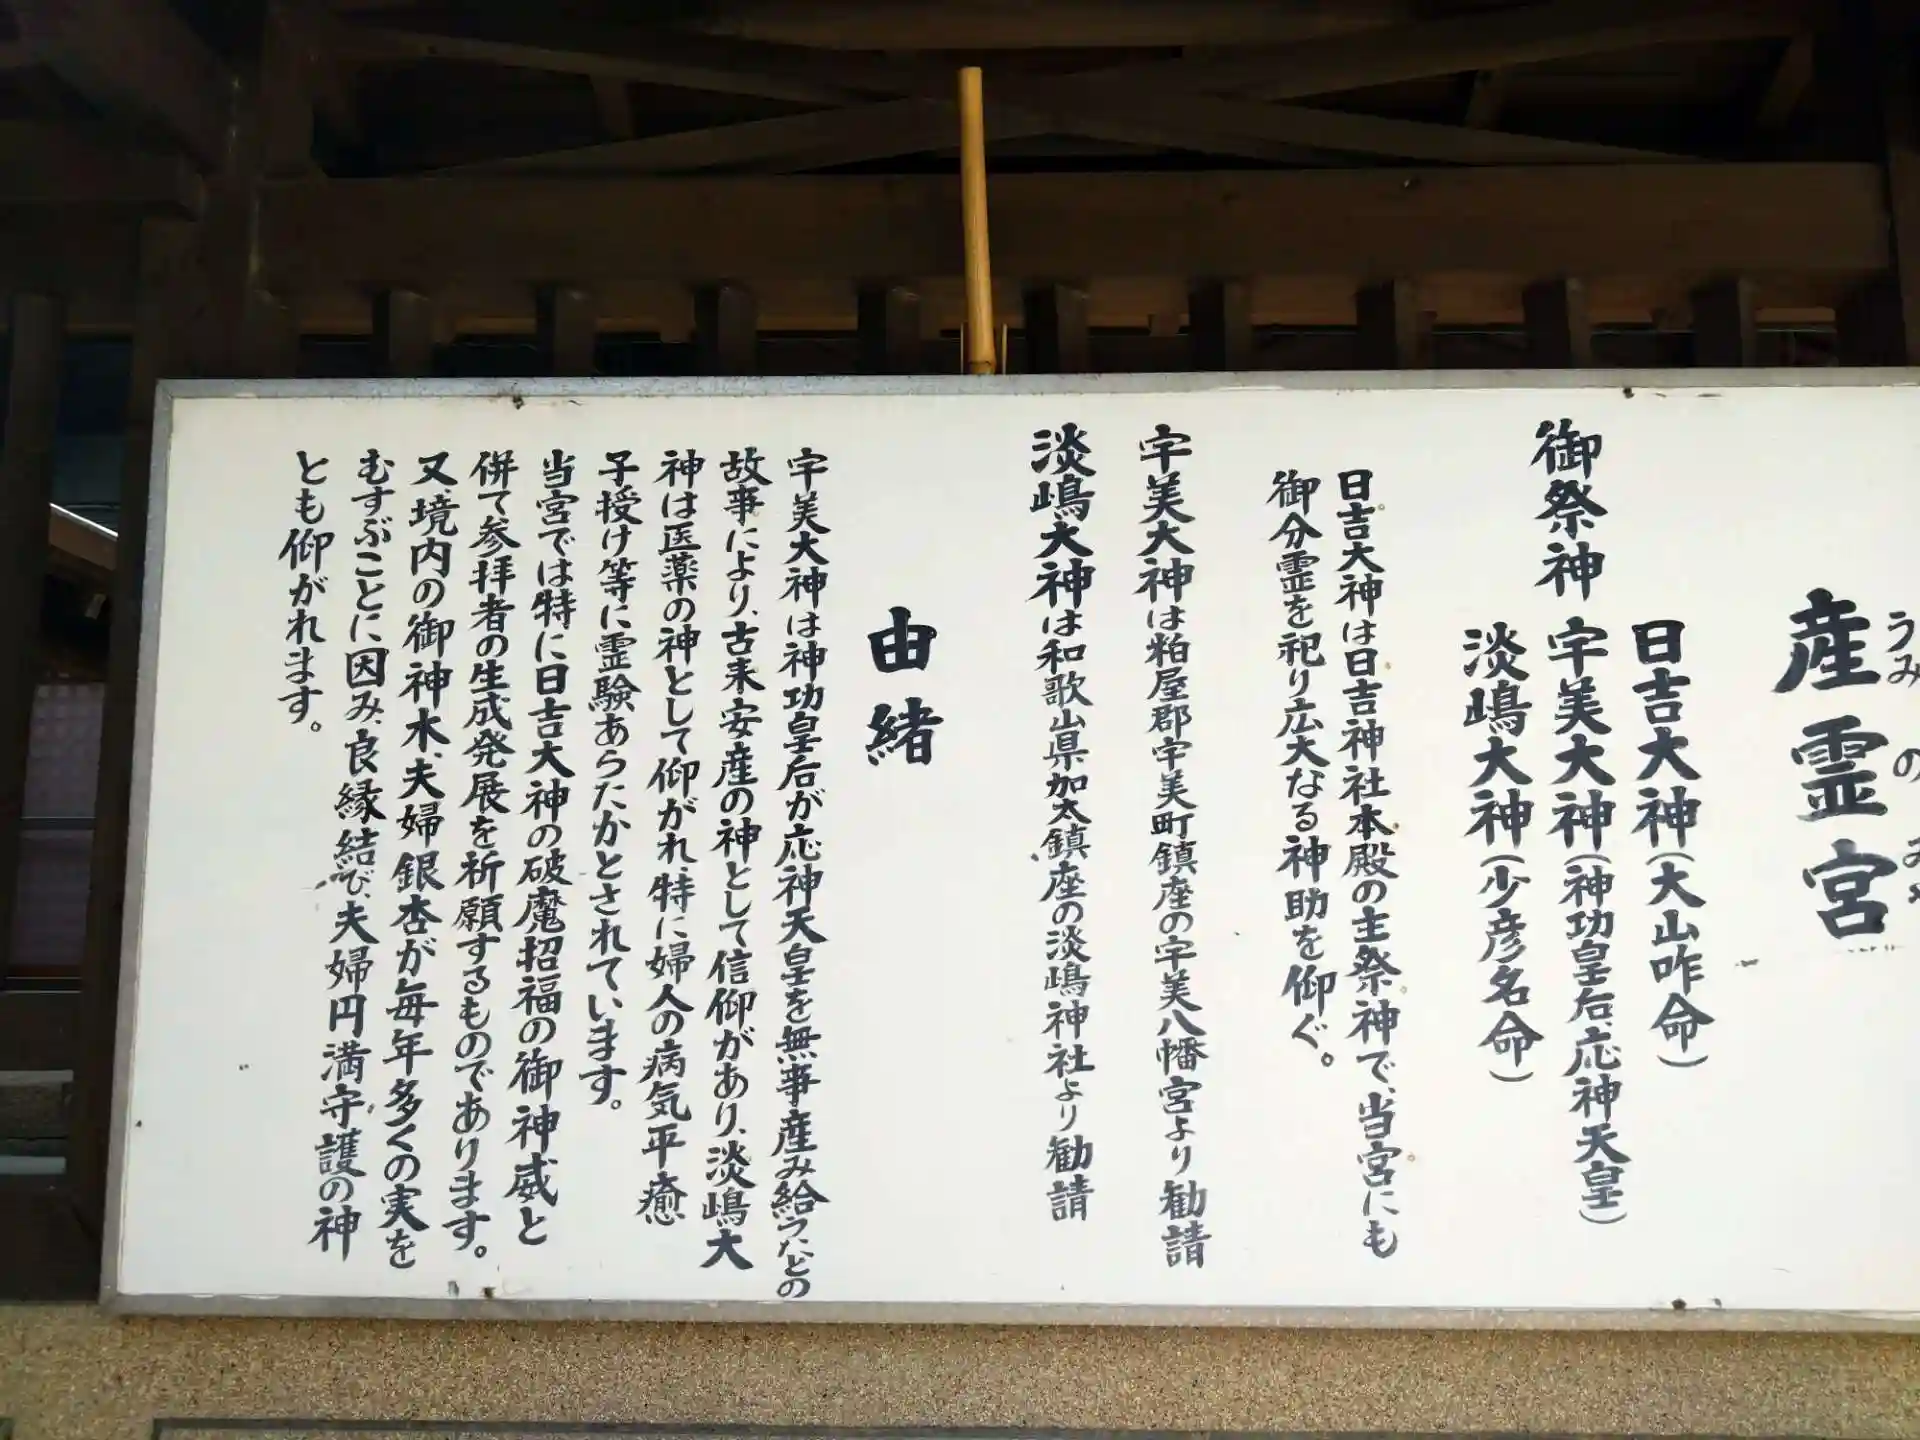 産霊宮
うみのみや
御祭神
日吉大神（大山咋命）
宇美大神（神功皇后、応神天皇）
淡嶋大神（少彦名命）
日吉大神は日吉神社本殿の主祭神で、当宮にも
御分霊を祀り広大なる神助を仰ぐ。
宇美大神は粕屋郡宇美町鎮座の宇美八幡宮より勧請
淡嶋大神は和歌山県加太鎮座の淡嶋神社より勧請
由緒
宇美大神は神功皇后が応神天皇を無事産み給うたとの
故事により、古来安産の神として信仰があり、淡嶋大
神は医薬の神として仰がれ、特に婦人の病気平癒
子授け等に霊験あらたかとされています。
当宮では特に日吉大神の破魔招福の御神威と
併て参拝者の生成発展を祈願するものであります。
又、境内の御神木、夫婦銀杏が毎年多くの実を
むすぶことに因み、良縁結び、夫婦円満守護の神
とも仰がれます。